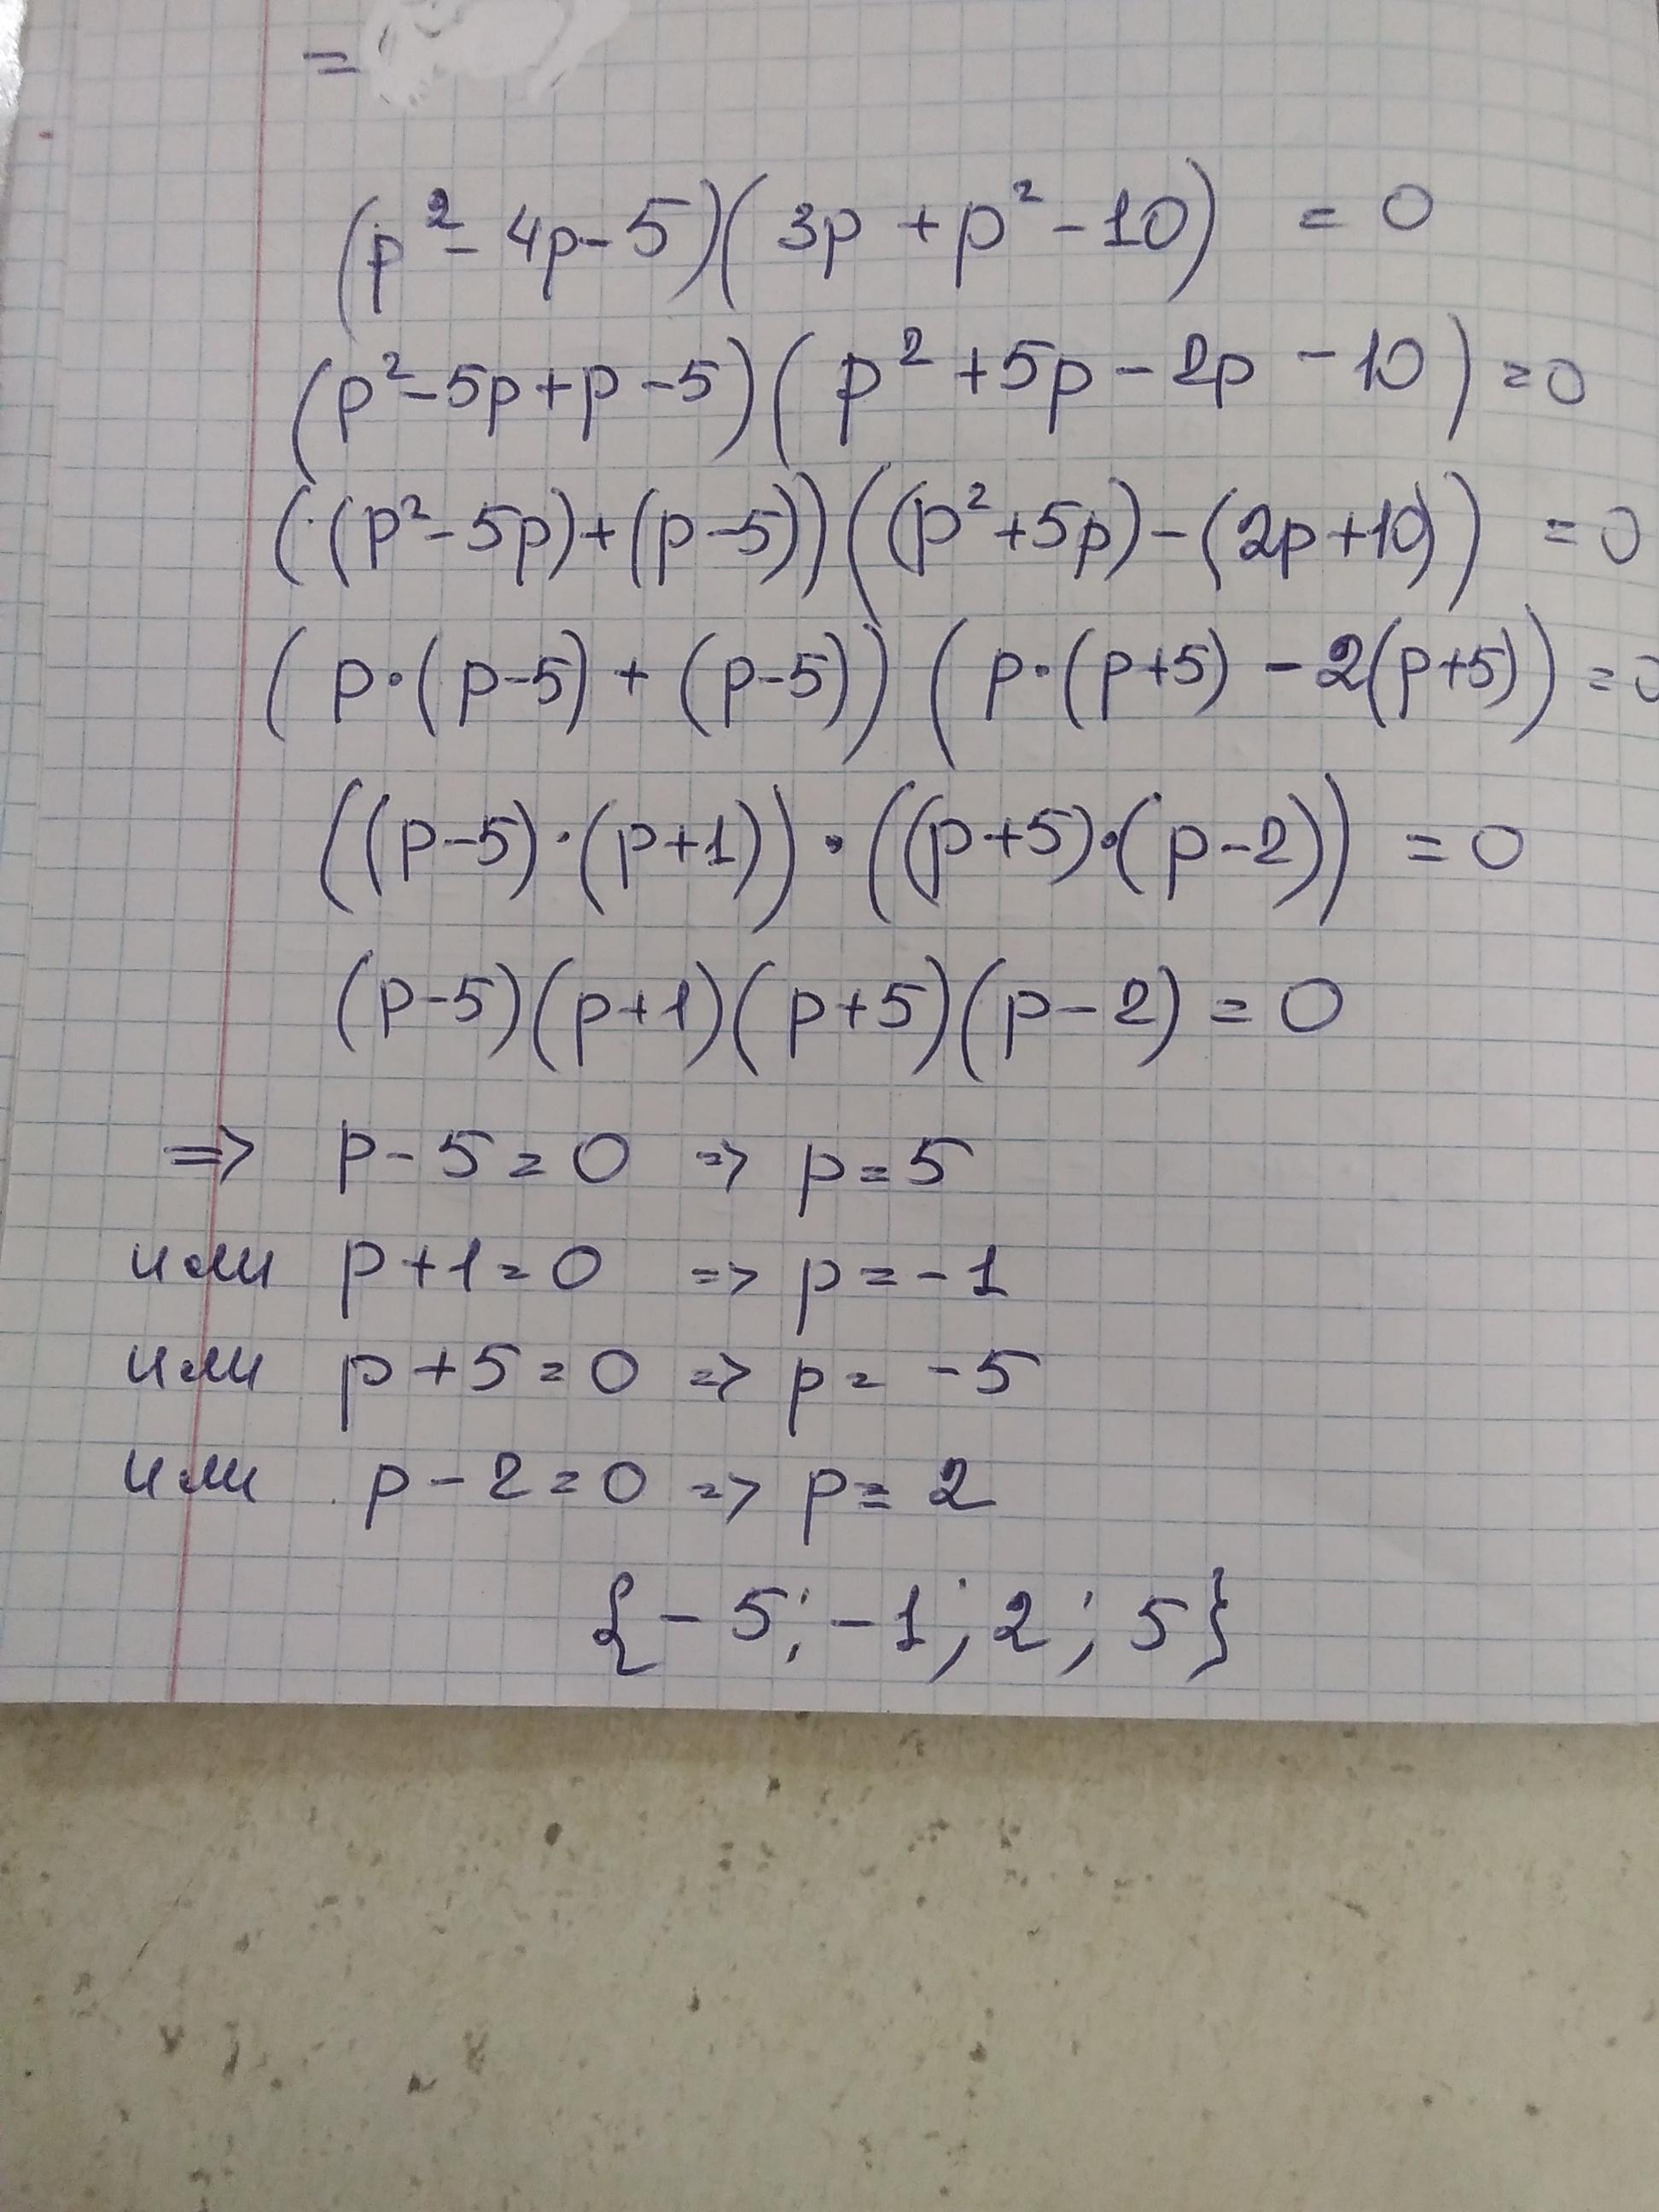 =
(p² - 4p - 5)(3p + p² - 10) = 0
(p² - 5p + p - 5)(p² + 5p - 2p - 10) = 0
((p² - 5p) + (p - 5))((p² + 5p) - (2p + 10)) = 0
(p·(p-5) + (p-5))(p·(p+5) - 2(p+5)) = 0
((p-5)·(p+1))·((p+5)·(p-2)) = 0
(p-5)(p+1)(p+5)(p-2) = 0
=> p - 5 = 0 => p = 5
или p + 1 = 0 => p = -1
или p + 5 = 0 => p = -5
или p - 2 = 0 => p = 2
{-5; -1; 2; 5}